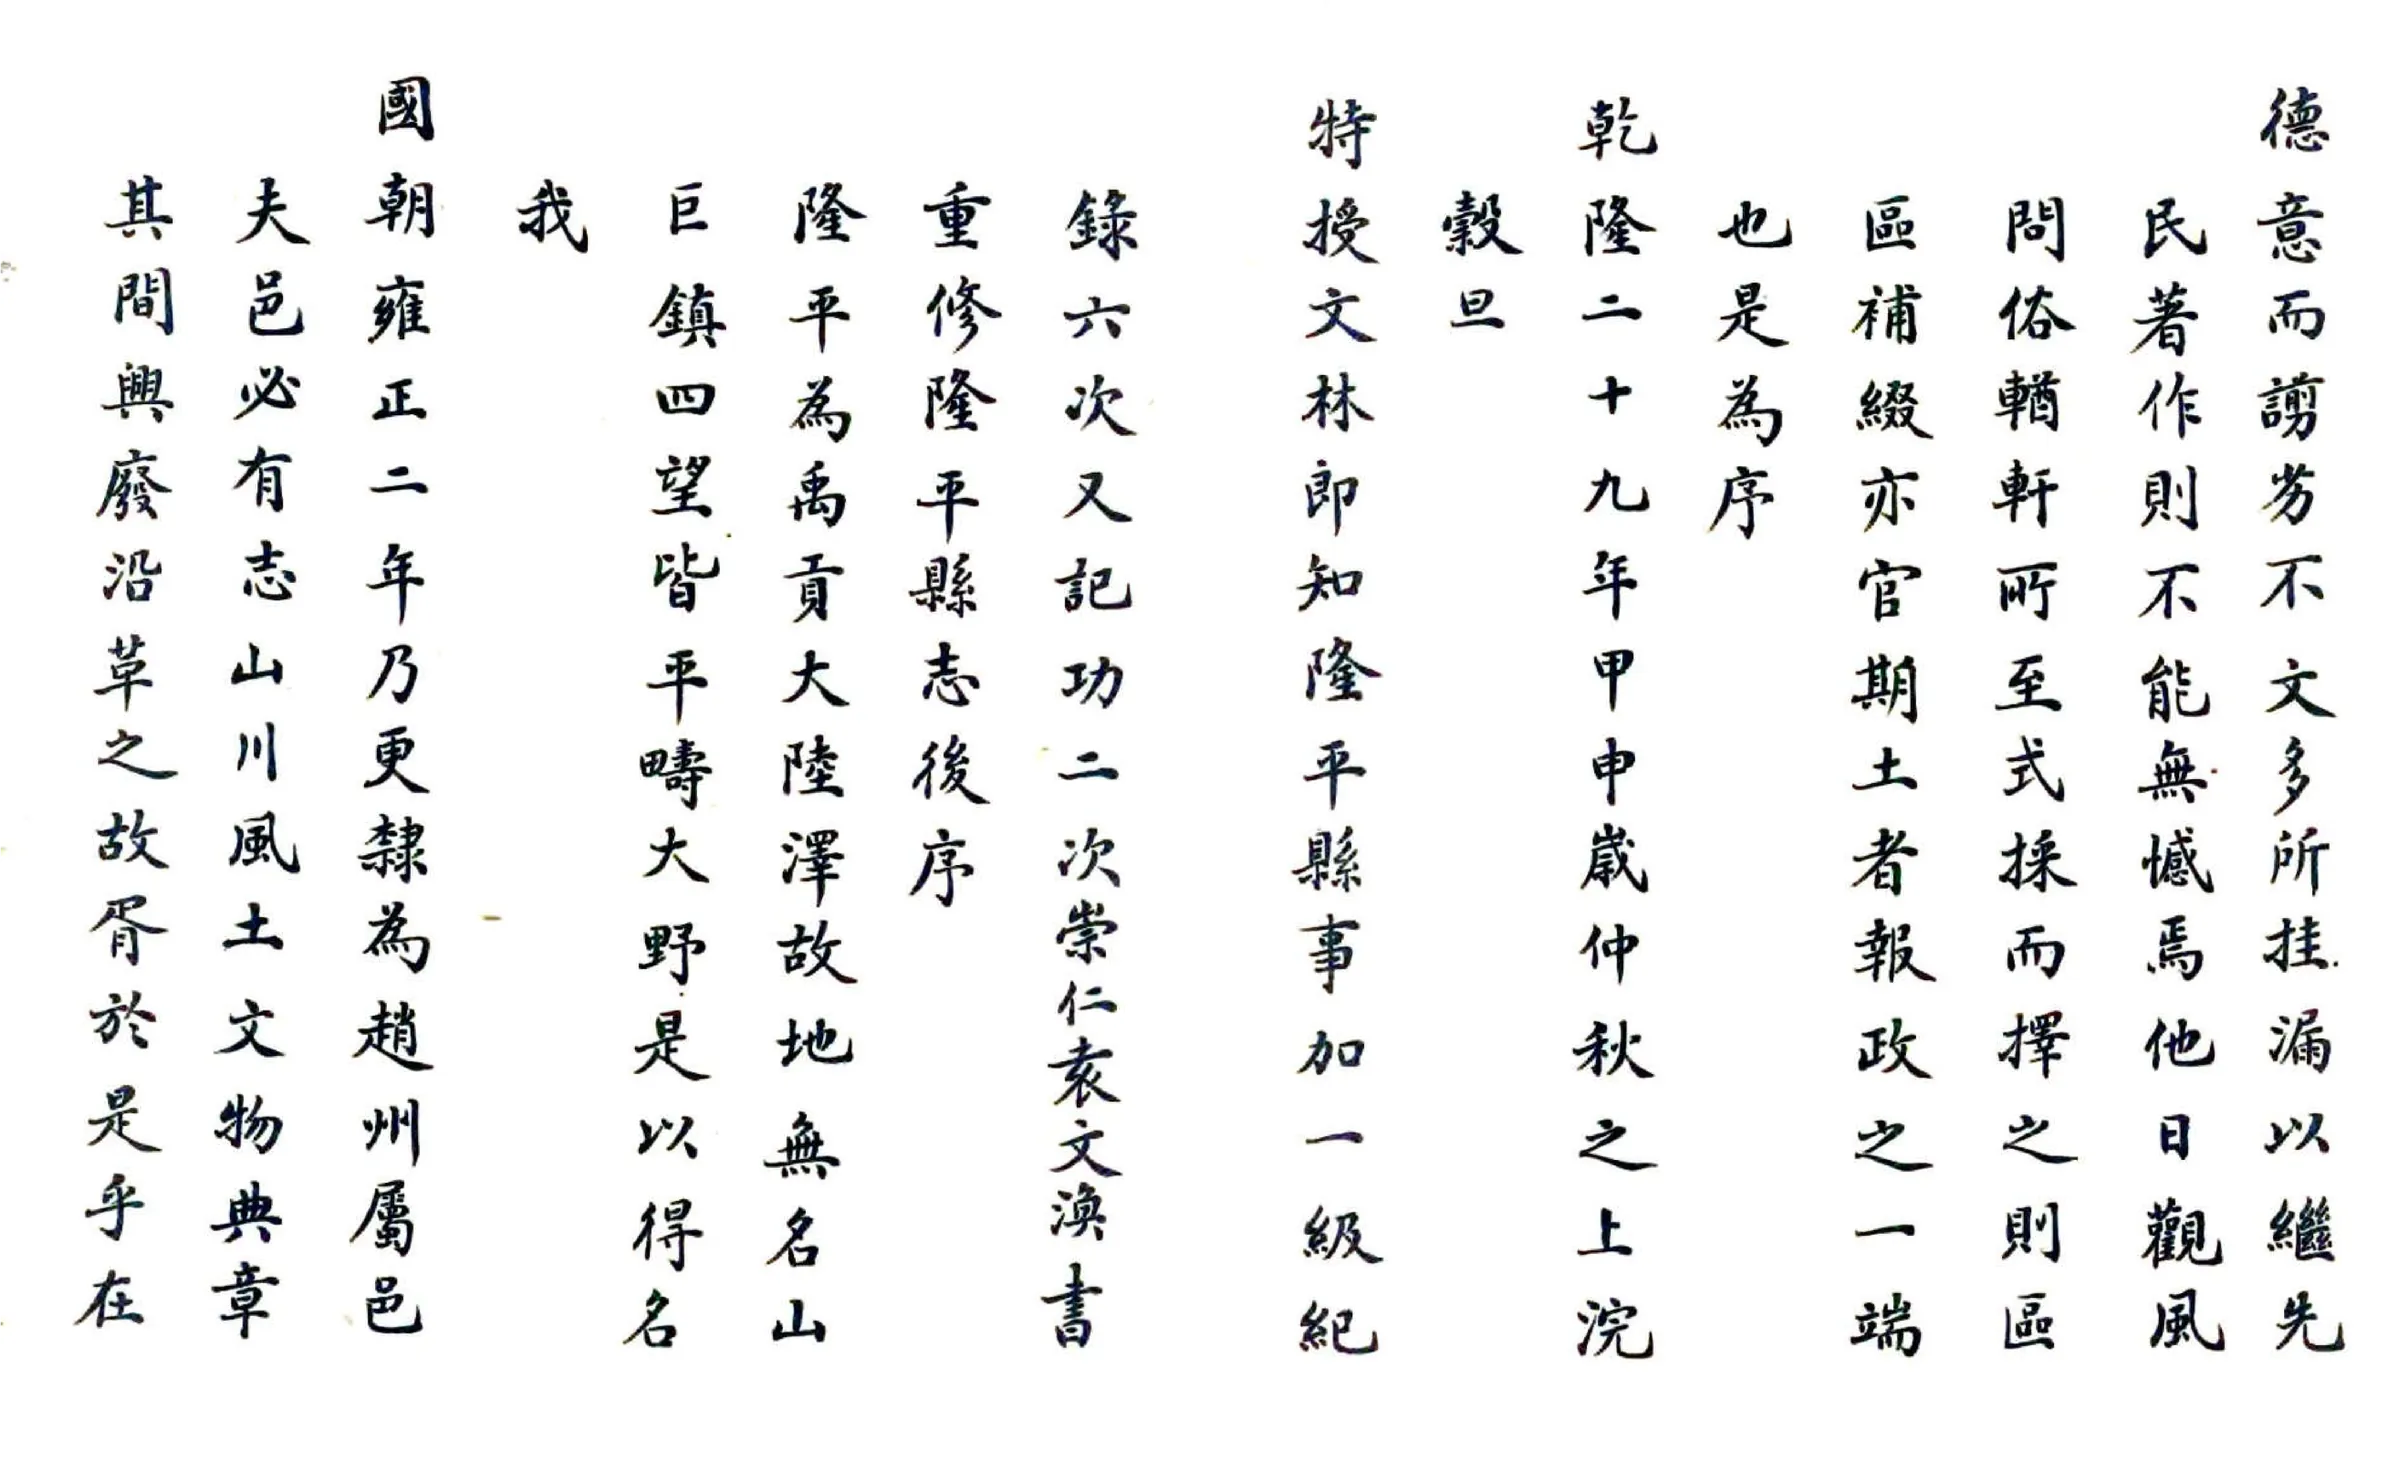 德意而謭劣不文多所挂漏以繼先
民著作則不能無憾焉他日觀風
問俗輶軒所至式採而擇之則區
區補綴亦官期土者報政之一端
也是為序
乾隆二十九年甲申歲仲秋之上浣
穀旦
特授文林郎知隆平縣事加一級紀
錄六次又記功二次崇仁袁文渙書
重修隆平縣志後序
隆平為禹貢大陸澤故地無名山
巨鎮四望皆平疇大野是以得名
我
國朝雍正二年乃更隸為趙州屬邑
夫邑必有志山川風土文物典章
其間興廢沿革之故胥於是乎在